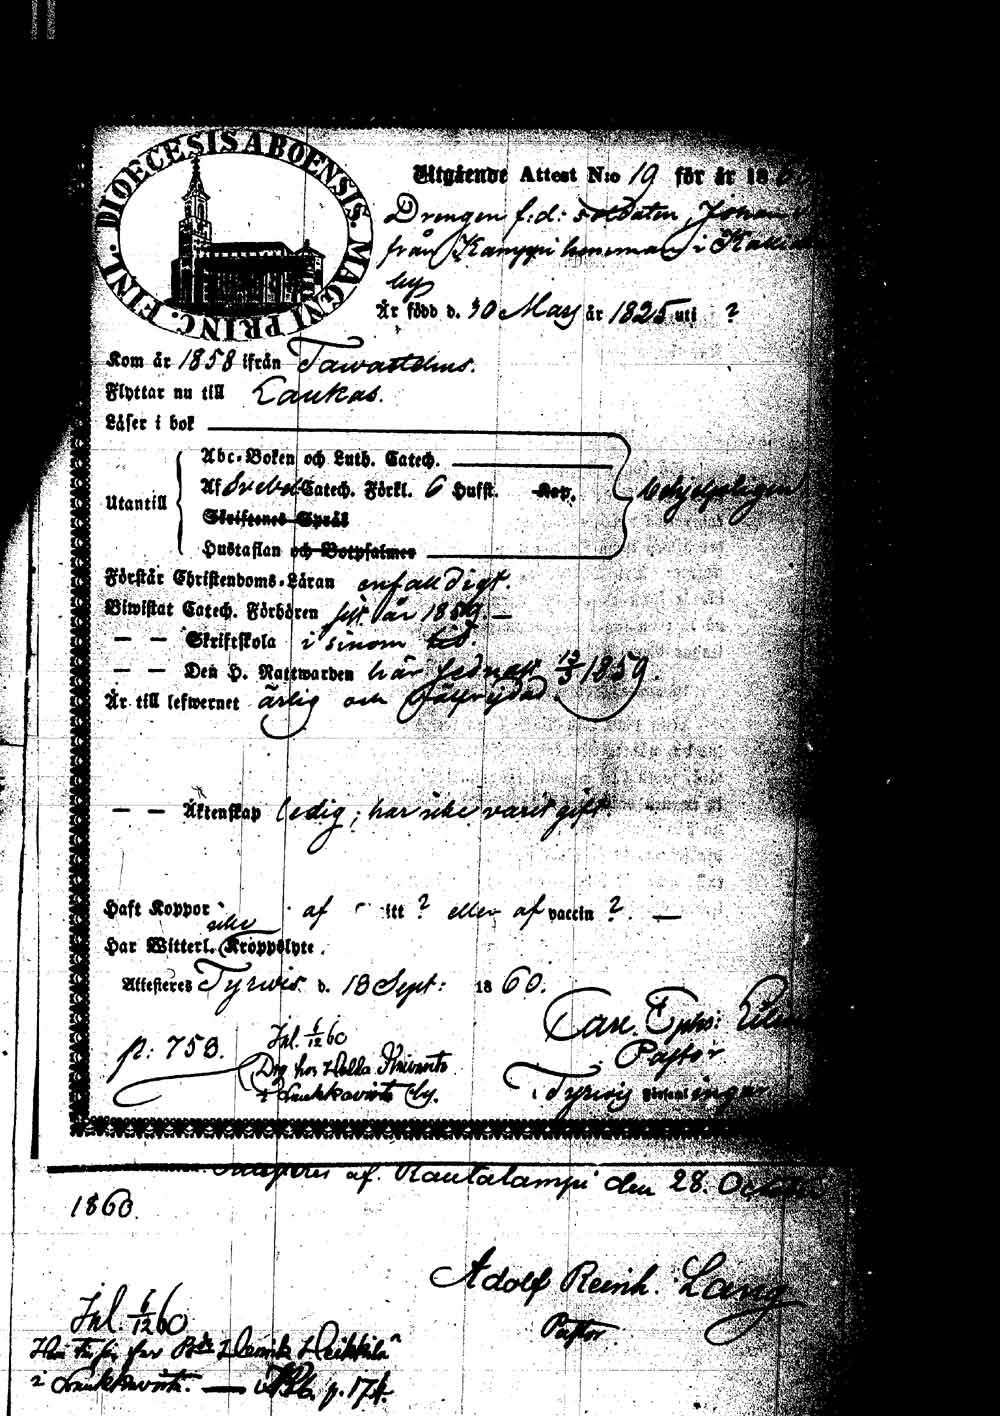 DIOECESIS ABOENSIS. MAGNI PRINC. FINL.
Utgående Attest N:o 19 för år 18
Drengen f:d: soldaten, Johan
från Kamppi hemman i
by
Är född d. 30 May år 1825 uti ?
Kom år 1858 ifrån Tawastehus.
Flyttar nu till Laukas.
Läser i bok
Abc-Boken och Luth. Catech.
Utantill
Af Svebel. Catech. Förkl. 6 Hufst. behjelpligen
Skriftenes Språk
Hustaflan och Botpsalmer
Förstår Christendoms-Läran enfaldigt.
Biwistat Catech. Förhören sist år 1859. —
— — Skriftskola i sinom tid.
— — Den H. Nattwarden här sednast 12/3 1859.
Är till lefwernet ärlig och
— — Äktenskap ledig; har icke varit gift.
Haft Koppor af itt ? eller af vaccin ? . —
icke
Har Witterl. Kroppslyte.
Attesteras Tyrwis d. 18 Sept: 1860.
Carl Ephr:
Pastor
p: 753. Inl. 6/12 60
Drg hos
i Laukkavirta by.
i Tyrwis
af Rautalampi den 28. October
1860.
Adolf Reinh. Lang
Pastor
Inl. 6/12 60
Henrik Heikkilä
i Laukkavirta. — p. 174.